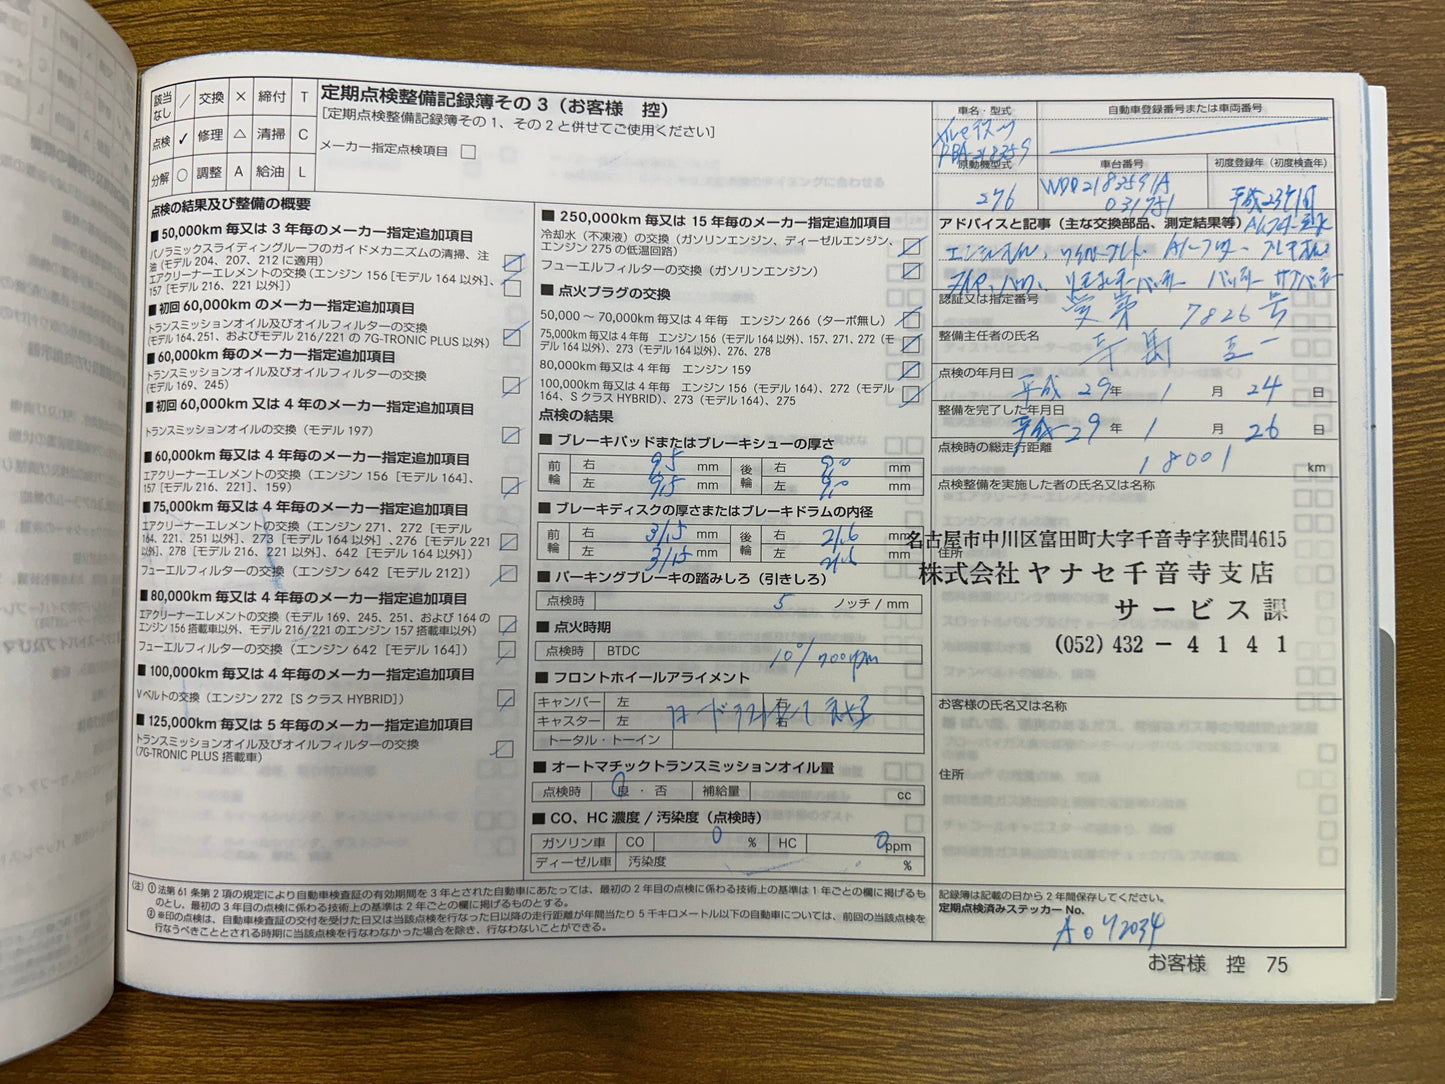 該当なし ／ 交換 × 締付 T
点検 ✓ 修理 △ 清掃 C
分解 ○ 調整 A 給油 L
定期点検整備記録簿その3（お客様 控）
[定期点検整備記録簿その1、その2と併せてご使用ください]
メーカー指定点検項目 □
点検の結果及び整備の概要
■ 50,000km 毎又は 3 年毎のメーカー指定追加項目
パノラミックスライディングルーフのガイドメカニズムの清掃、注
油（モデル 204、207、212 に適用）
エアクリーナーエレメントの交換（エンジン 156［モデル 164 以外］、
157［モデル 216、221 以外］）
■ 初回 60,000km のメーカー指定追加項目
トランスミッションオイル及びオイルフィルターの交換
（モデル 164、251、およびモデル 216/221 の 7G-TRONIC PLUS 以外）
■ 60,000km 毎のメーカー指定追加項目
トランスミッションオイル及びオイルフィルターの交換
（モデル 169、245）
■ 初回 60,000km 又は 4 年のメーカー指定追加項目
トランスミッションオイルの交換（モデル 197）
■ 60,000km 毎又は 4 年毎のメーカー指定追加項目
エアクリーナーエレメントの交換（エンジン 156［モデル 164］、
157［モデル 216、221］、159）
■ 75,000km 毎又は 4 年毎のメーカー指定追加項目
エアクリーナーエレメントの交換（エンジン 271、272［モデル
164、221、251 以外］、273［モデル 164 以外］、276［モデル 221
以外］、278［モデル 216、221 以外］、642［モデル 164 以外］）
フューエルフィルターの交換（エンジン 642［モデル 212］）
■ 80,000km 毎又は 4 年毎のメーカー指定追加項目
エアクリーナーエレメントの交換（モデル 169、245、251、および 164 の
エンジン 156 搭載車以外、モデル 216/221 のエンジン 157 搭載車以外）
フューエルフィルターの交換（エンジン 642［モデル 164］）
■ 100,000km 毎又は 4 年毎のメーカー指定追加項目
Vベルトの交換（エンジン 272［S クラス HYBRID］）
■ 125,000km 毎又は 5 年毎のメーカー指定追加項目
トランスミッションオイル及びオイルフィルターの交換
（7G-TRONIC PLUS 搭載車）
■ 250,000km 毎又は 15 年毎のメーカー指定追加項目
冷却水（不凍液）の交換（ガソリンエンジン、ディーゼルエンジン、
エンジン 275 の低温回路）
フューエルフィルターの交換（ガソリンエンジン）
■ 点火プラグの交換
50,000 ～ 70,000km 毎又は 4 年毎 エンジン 266（ターボ無し）
75,000km 毎又は 4 年毎 エンジン 156（モデル 164 以外）、157、271、272（モデ
ル 164 以外）、273（モデル 164 以外）、276、278
80,000km 毎又は 4 年毎 エンジン 159
100,000km 毎又は 4 年毎 エンジン 156（モデル 164）、272（モデル
164、S クラス HYBRID）、273（モデル 164）、275
点検の結果
■ ブレーキパッドまたはブレーキシューの厚さ
前輪 右 9.5 mm 後輪 右 9.0 mm
左 9.5 mm 左 9.0 mm
■ ブレーキディスクの厚さまたはブレーキドラムの内径
前輪 右 31.5 mm 後輪 右 21.6 mm
左 31.5 mm 左 21.6 mm
■ パーキングブレーキの踏みしろ（引きしろ）
点検時 5 ノッチ / mm
■ 点火時期
点検時 BTDC 10°/700rpm
■ フロントホイールアライメント
キャンバー 左 右
キャスター 左 右
トータル・トーイン
■ オートマチックトランスミッションオイル量
点検時 良 ・ 否 補給量 cc
■ CO、HC 濃度 / 汚染度（点検時）
ガソリン車 CO 0 % HC 0 ppm
ディーゼル車 汚染度 %
車名・型式 自動車登録番号または車両番号
メルセデスベンツ
DBA-218359
原動機型式 車台番号 初度登録年（初度検査年）
276 WDD2183591A 平成23年11月
アドバイスと記事（主な交換部品、測定結果等）
エンジンオイル、ワイパーブレード
バッテリー
認証又は指定番号
愛第 7826号
整備主任者の氏名
点検の年月日
平成 29 年 1 月 24 日
整備を完了した年月日
平成 29 年 1 月 26 日
点検時の総走行距離
18001 km
点検整備を実施した者の氏名又は名称
名古屋市中川区富田町大字千音寺字狭間4615
住所
株式会社ヤナセ千音寺支店
サービス課
(052) 432－4141
お客様の氏名又は名称
住所
（注）① 法第 61 条第 2 項の規定により自動車検査証の有効期間を 3 年とされた自動車にあたっては、最初の 2 年目の点検に係わる技術上の基準は 1 年ごとの欄に掲げるも
のとし、最初の 3 年目の点検に係わる技術上の基準は 2 年ごとの欄に掲げるものとする。
② ※印の点検は、自動車検査証の交付を受けた日又は当該点検を行なった日以降の走行距離が年間当たり 5 千キロメートル以下の自動車については、前回の当該点検を
行なうべきこととされる時期に当該点検を行なわなかった場合を除き、行なわないことができる。
記録簿は記載の日から 2 年間保存してください。
定期点検済みステッカー No.
A 072034
お客様 控 75